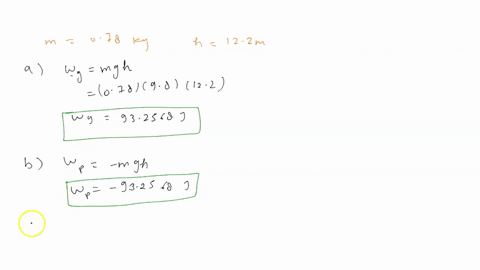 m = 0.78 kg h = 12.2m
a) Wg = mgh
= (0.78)(9.8)(12.2)
Wg = 93.2568 J
b) Wp = -mgh
Wp = -93.2568 J